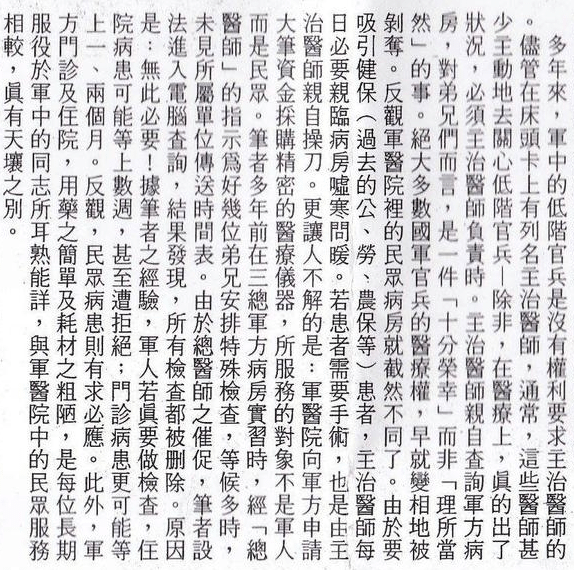 多年來，軍中的低階官兵是沒有權利要求主治醫師的
。儘管在床頭卡上有列名主治醫師，通常，這些醫師甚
少主動地去關心低階官兵—除非，在醫療上，眞的出了
狀況，必須主治醫師負責時。主治醫師親自查詢軍方病
房，對弟兄們而言，是一件「十分榮幸」而非「理所當
然」的事。絕大多數國軍官兵的醫療權，早就變相地被
剝奪。反觀軍醫院裡的民眾病房就截然不同了。由於要
吸引健保（過去的公、勞、農保等）患者，主治醫師每
日必要親臨病房噓寒問暖。若患者需要手術，也是由主
治醫師親自操刀。更讓人不解的是：軍醫院向軍方申請
大筆資金採購精密的醫療儀器，所服務的對象不是軍人
而是民眾。筆者多年前在三總軍方病房實習時，經「總
醫師」的指示爲好幾位弟兄安排特殊檢查，等候多時，
未見所屬單位傳送時間表。由於總醫師之催促，筆者設
法進入電腦查詢，結果發現，所有檢查都被刪除。原因
是：無此必要！據筆者之經驗，軍人若眞要做檢查，住
院病患可能等上數週，甚至遭拒絕；門診病患更可能等
上一、兩個月。反觀，民眾病患則有求必應。此外，軍
方門診及住院，用藥之簡單及耗材之粗陋，是每位長期
服役於軍中的同志所耳熟能詳，與軍醫院中的民眾服務
相較，眞有天壤之別。